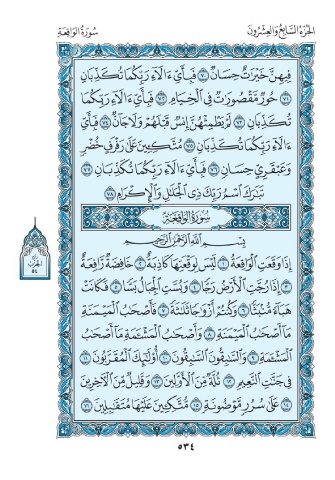 الجزء السابع والعشرون
سورة الواقعة
فِيهِنَّ خَيْرَٰتٌ حِسَانٌ ٧٠ فَبِأَيِّ ءَالَآءِ رَبِّكُمَا تُكَذِّبَانِ
٧١ حُورٌ مَّقْصُورَٰتٌ فِي ٱلْخِيَامِ ٧٢ فَبِأَيِّ ءَالَآءِ رَبِّكُمَا
تُكَذِّبَانِ ٧٣ لَمْ يَطْمِثْهُنَّ إِنسٌ قَبْلَهُمْ وَلَا جَآنٌّ ٧٤ فَبِأَيِّ
ءَالَآءِ رَبِّكُمَا تُكَذِّبَانِ ٧٥ مُتَّكِـِٔينَ عَلَىٰ رَفْرَفٍ خُضْرٍ
وَعَبْقَرِيٍّ حِسَانٍ ٧٦ فَبِأَيِّ ءَالَآءِ رَبِّكُمَا تُكَذِّبَانِ ٧٧
تَبَٰرَكَ ٱسْمُ رَبِّكَ ذِي ٱلْجَلَٰلِ وَٱلْإِكْرَامِ ٧٨
سورة الواقعة
بِسْمِ ٱللَّهِ ٱلرَّحْمَٰنِ ٱلرَّحِيمِ
إِذَا وَقَعَتِ ٱلْوَاقِعَةُ ١ لَيْسَ لِوَقْعَتِهَا كَاذِبَةٌ ٢ خَافِضَةٌ رَّافِعَةٌ
٣ إِذَا رُجَّتِ ٱلْأَرْضُ رَجًّا ٤ وَبُسَّتِ ٱلْجِبَالُ بَسًّا ٥ فَكَانَتْ
هَبَآءً مُّنۢبَثًّا ٦ وَكُنتُمْ أَزْوَٰجًا ثَلَٰثَةً ٧ فَأَصْحَٰبُ ٱلْمَيْمَنَةِ
مَآ أَصْحَٰبُ ٱلْمَيْمَنَةِ ٨ وَأَصْحَٰبُ ٱلْمَشْـَٔمَةِ مَآ أَصْحَٰبُ
ٱلْمَشْـَٔمَةِ ٩ وَٱلسَّٰبِقُونَ ٱلسَّٰبِقُونَ ١٠ أُو۟لَٰٓئِكَ ٱلْمُقَرَّبُونَ ١١
فِي جَنَّٰتِ ٱلنَّعِيمِ ١٢ ثُلَّةٌ مِّنَ ٱلْأَوَّلِينَ ١٣ وَقَلِيلٌ مِّنَ ٱلْـَٔاخِرِينَ
١٤ عَلَىٰ سُرُرٍ مَّوْضُونَةٍ ١٥ مُّتَّكِـِٔينَ عَلَيْهَا مُتَقَٰبِلِينَ ١٦
الحزب
٥٤
٥٣٤